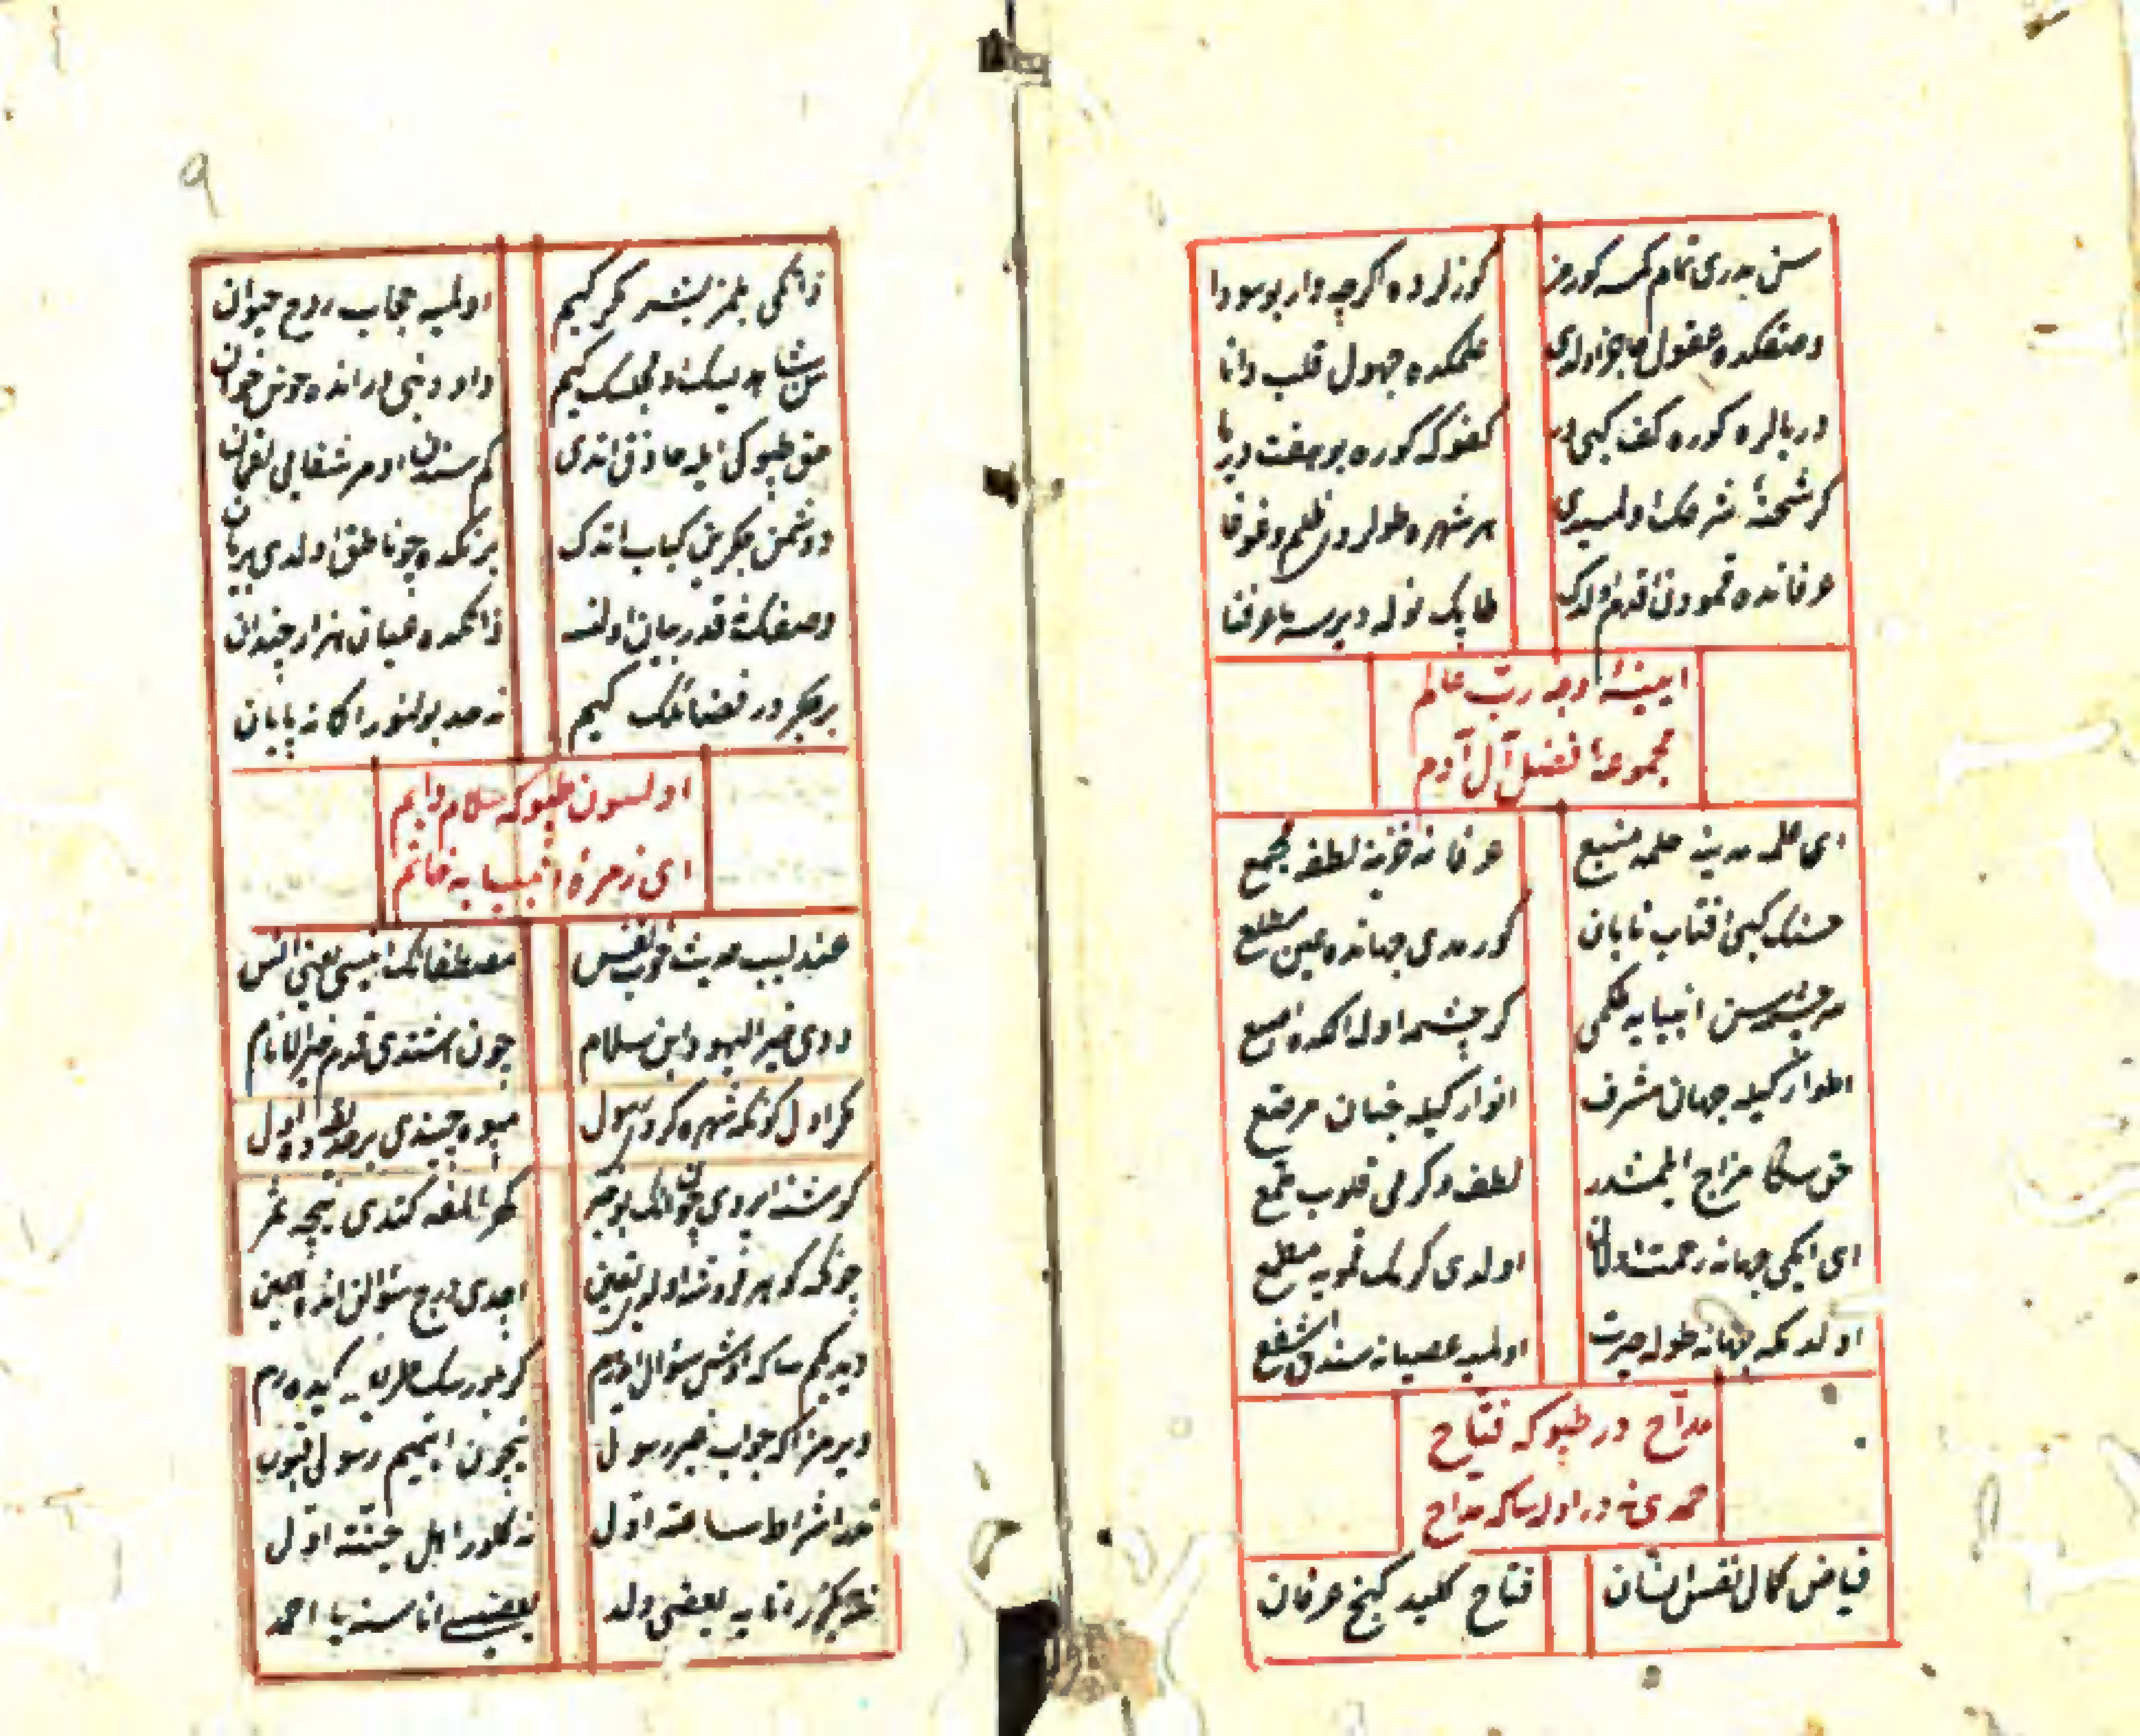 سن بدری تمام کمسه کورمز کوزلرده اکرچه وار بو سودا
وصفکده عقول عاجز اولدی علمکده جهول قلب دانا
دریالره کوره کف کبی در کفوکه کوره بو هفت دریا
کر شحنهٔ شرعک اولمسیدی هر شهره طولردی ظلم و غوغا
عرفانده قمودن اقدم اولدک طاپک نوله دیرسه عرفنا
ایینهٔ وجه رب عالم
مجموعهٔ فضل آل آدم
ای علمه مدینه حلمه منبع عرفانه خزینه لطفه مجمع
حسنک کبی افتاب تابان کورمدی جهانده عین مطلع
سرچشمه سن انبیایه حکمی کر چشمه اولا اکده اصبع
اطوارکیله جهان مشرف انوارکیله جنان مرصع
حق سکا مزاج ایلمشدر لطف و کرمی قلوب طمع
ای ایکی جهانه رحمت اولان اولدی کرمک قمویه مطلع
اولدمکه جهانه طوله حیرت اولمیه عصیانه سندن اشفع
مداح در طپوکه فتاح
حمدی نه در اوله ساکه مداح
فیاض کمال نفس انسان فتاح کلید کنج عرفان
ذاتکی بلمز بشر مکر کیم اولمیه حجاب روح حیوان
سن شاهد لیسک او مجلسک کیم داود نبی در انده خوش خوان
حق طپوکی ایله حاذق اتدی کم سندن اومر شفایی لقمان
دوشمن جکرین کباب اتدک بزمکده چو ناطق اولدی بریان
وصفک نه قدر بیان اولنسه ذاتکده عیان هزار چندان
بر بحر در فضائلک کیم نه حد بولنور اکا نه پایان
اولسون طپوکه سلام دایم
ای زمرهٔ انبیایه خاتم
عندلیب حدیث خوب نفس مصطفانک انیسی یعنی انس
دیدی خیر الیهود ابن سلام چون اشتدی قدوم خیر الانام
مکر اول کونکه شهره کردی رسول میوه چیندی بر حدیقه ده اول
کوشنه ایردی چون انک بو خبر مصطفایه کتدی نیجه
چونکه کوهر فروشه اولدی یقین اچدی درج سؤالن اندا همین
دیدیکم ساکه اوش سؤال ایدرم کر بلورسک طریقه کیده رم
ویرمز اکه جواب غیر رسول نیجون ایتمیم رسولی قبول
نه در اشراط ساعته اول نه کلور اهل جنته اول
نیه چکر اتایه بعضی ولد بعضیسی اناسنه یا احمد